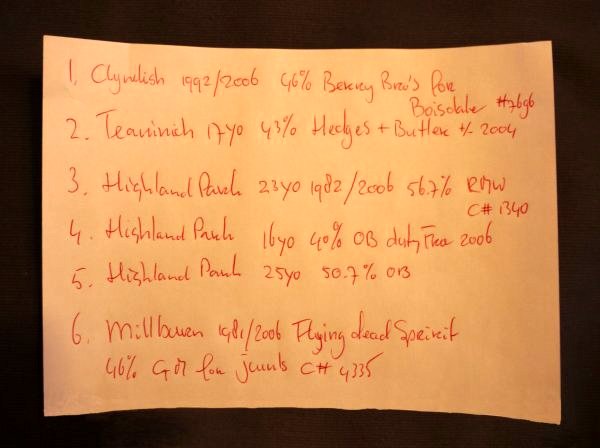 1. Clynelish 1992/2006 46% Berry Bro's for
Boisdale #7696
2. Teaninich 17yo 43% Hedges + Butler +/- 2004
3. Highland Park 23yo 1982/2006 56.7% RMW
C# 1340
4. Highland Park 16yo 40% OB duty free 2006
5. Highland Park 25yo 50.7% OB
6. Millburn 1981/2006 Flying dead Spirit
46% G+M for Juuls C# 4335